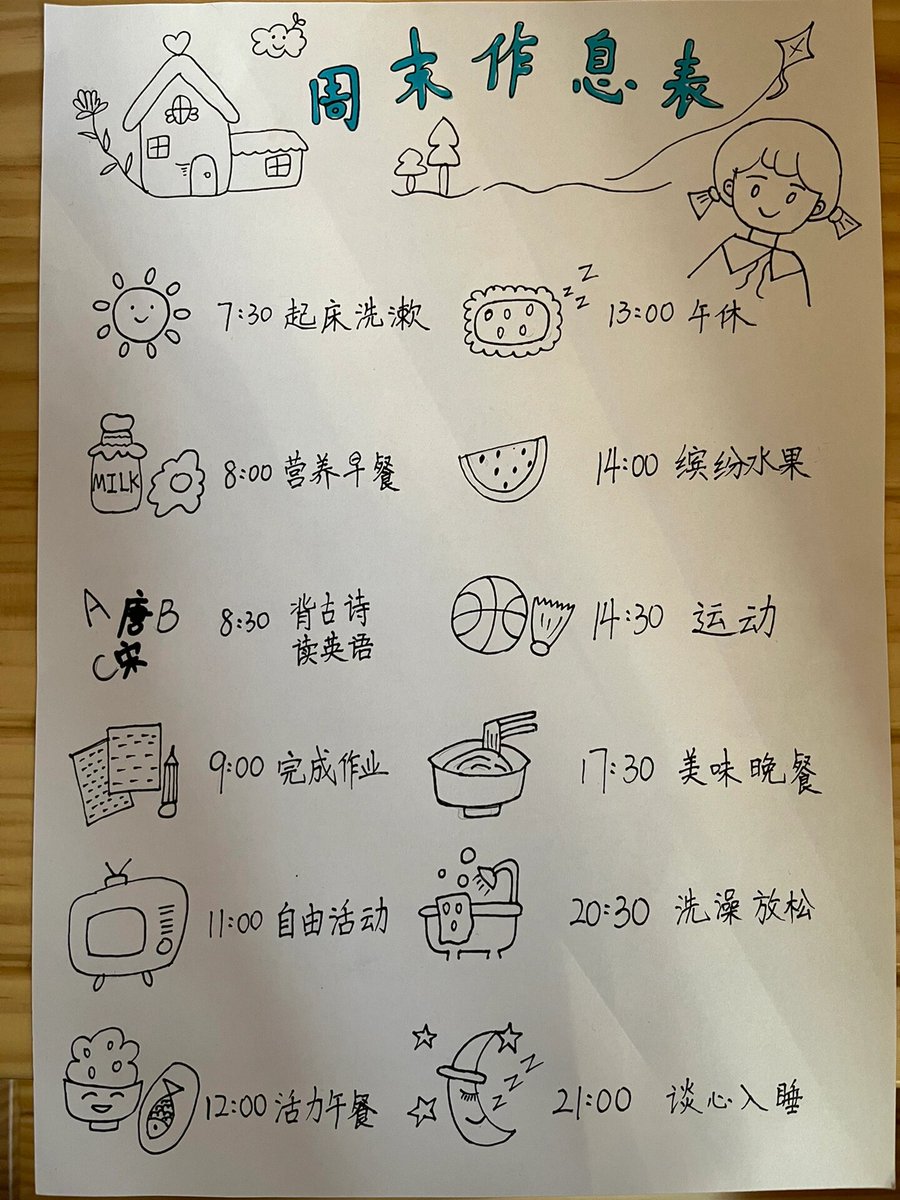 周末作息表
7:30 起床洗漱
MILK
8:00 营养早餐
A 唐 B
C 宋
8:30 背古诗
读英语
9:00 完成作业
11:00 自由活动
12:00 活力午餐
Z Z Z Z
13:00 午休
14:00 缤纷水果
14:30 运动
17:30 美味晚餐
20:30 洗澡放松
Z Z Z Z
21:00 谈心入睡